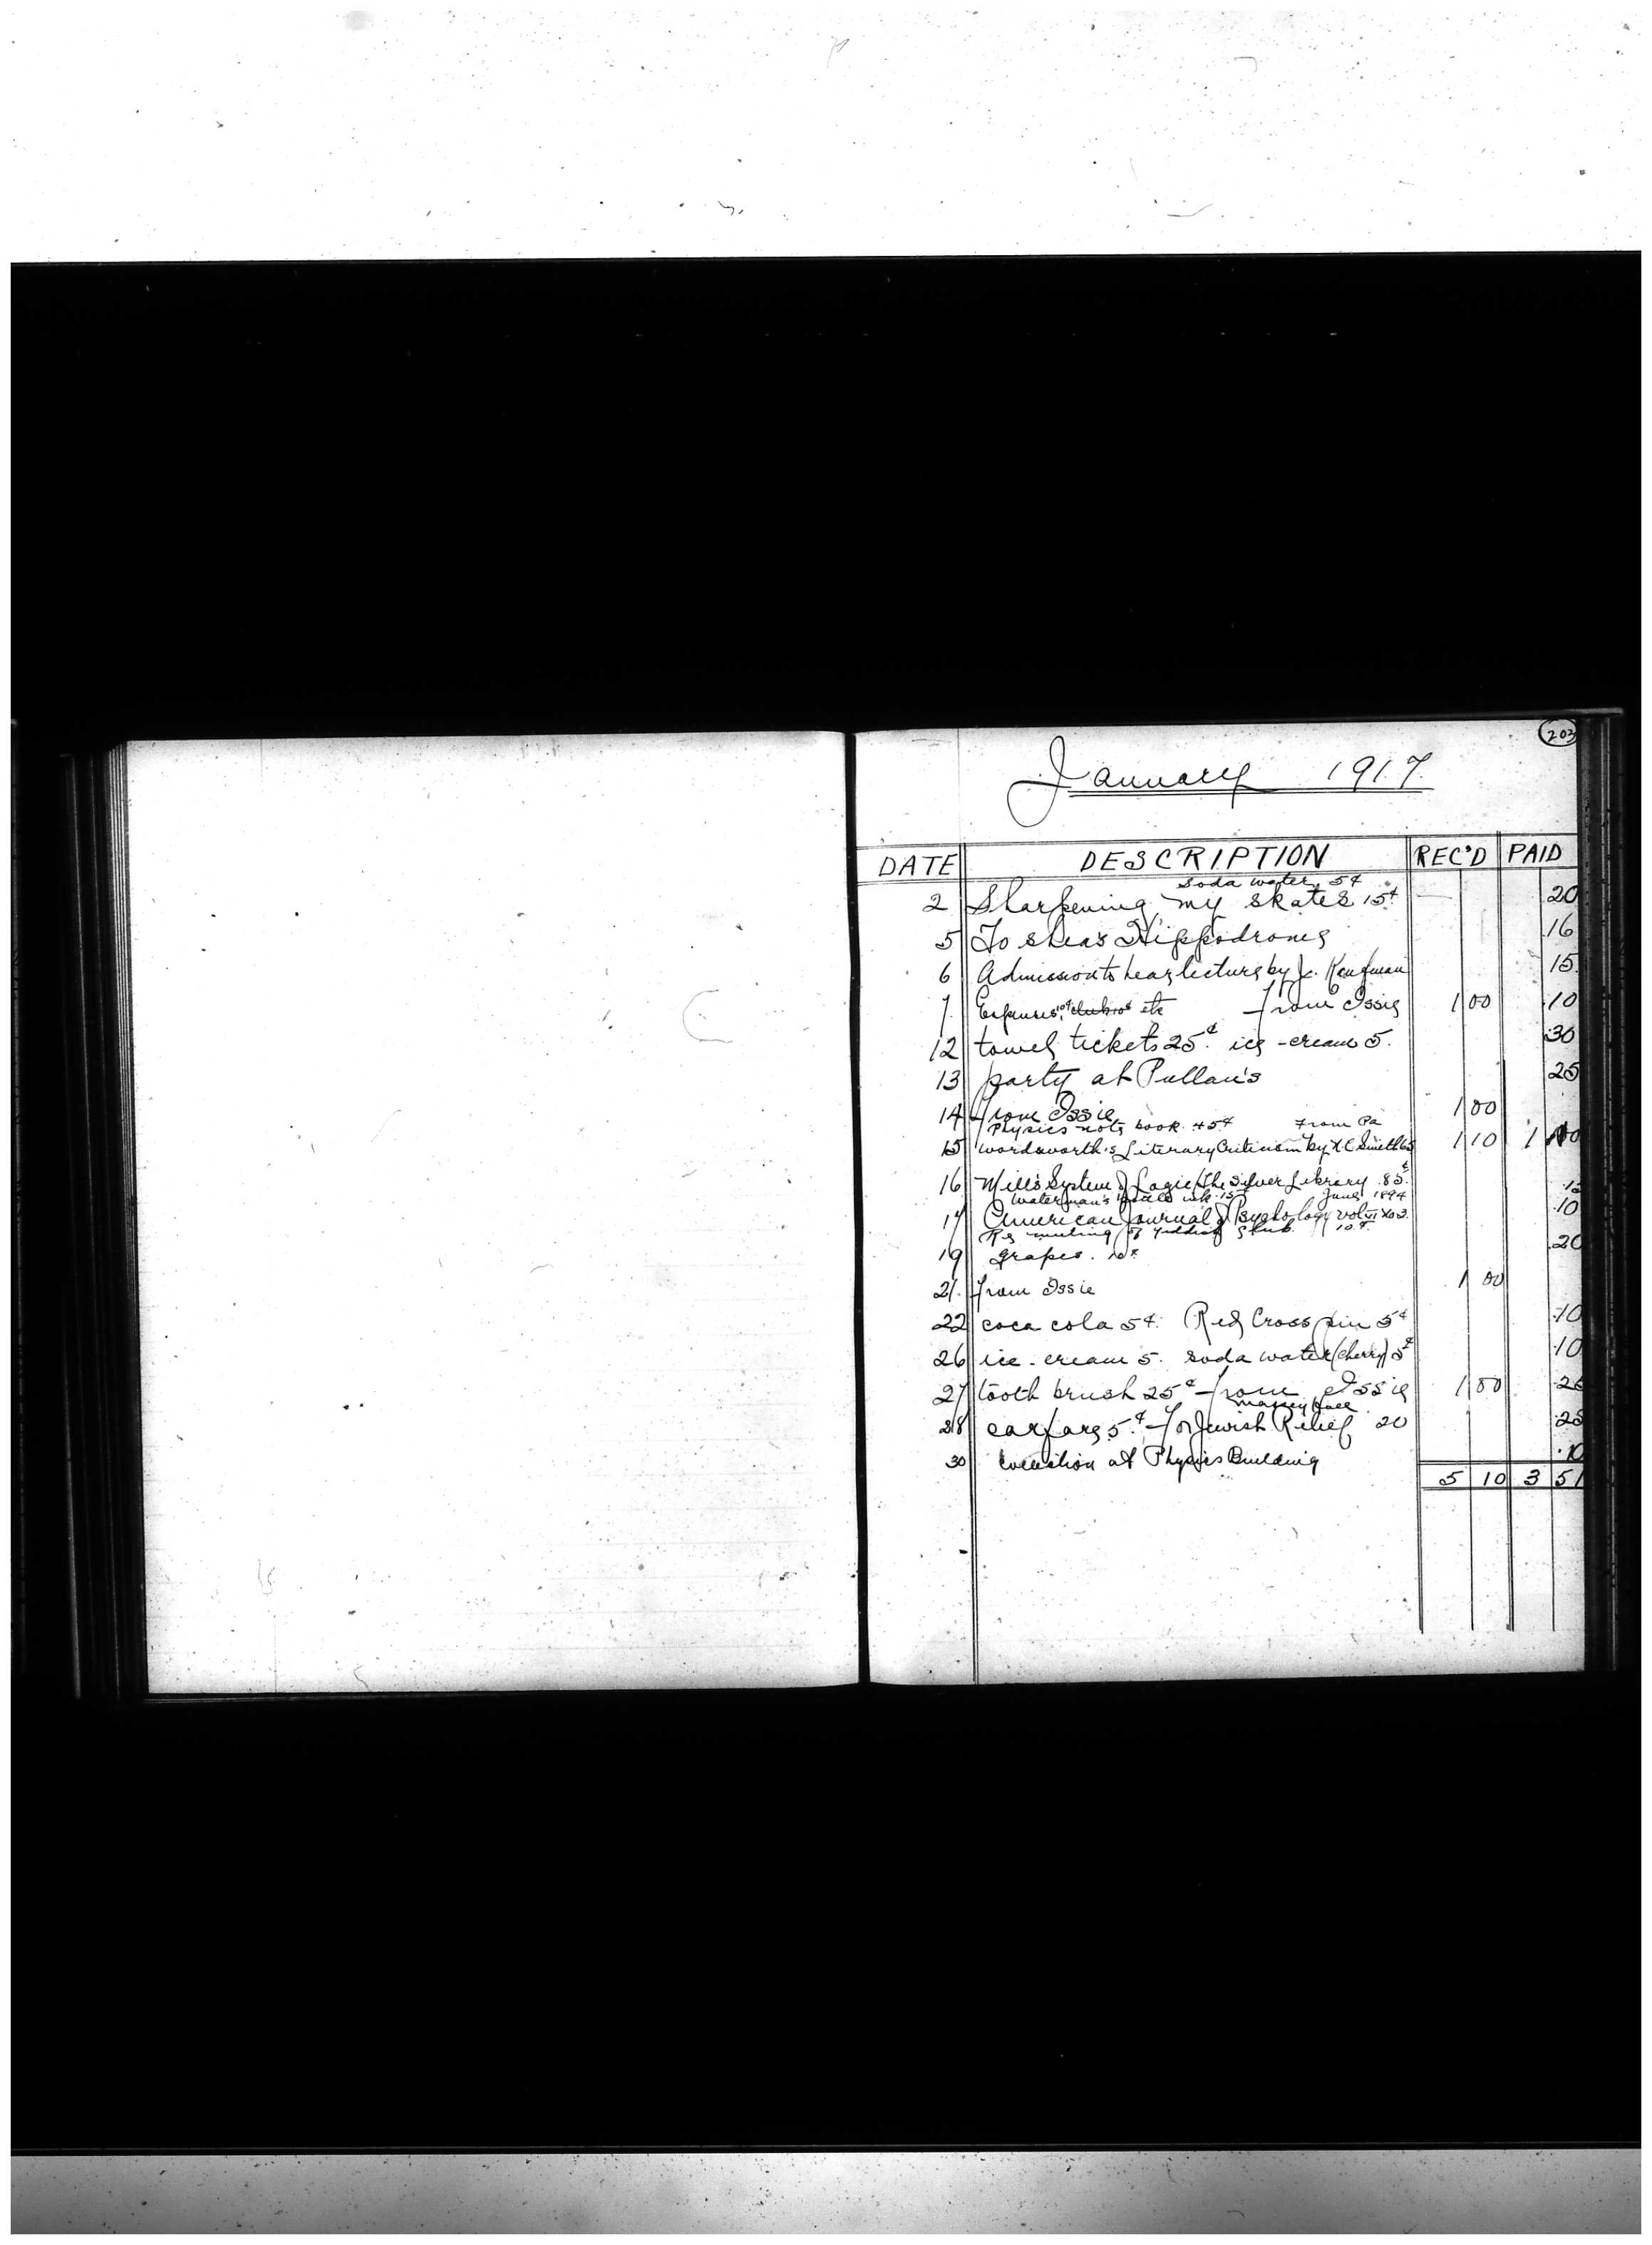 203
January 1917.
DATE DESCRIPTION REC'D PAID
soda water 5¢
2 Sharpening my skates 15¢ 20
5 To Shea's Hippodrome .16
6 Admission to hear lecture by J. Kaufman 15
7. Expenses 10¢ club 10¢ etc from Issie 1 00 .10
12 towel tickets 25¢. ice-cream 5. 30
13 party at Pullan's 25
14 from Issie 1 00
Physics note book 45¢ From Pa
15 Wordsworth's Literary Criticism by N C Smith 65 1 10 1
16 Mill's System of Logic (The Silver Library .85¢
Waterman's ink 15 June 1894
17 American Journal of Psychology vol VI No 3. .10
Re meeting of Yiddish 10¢.
19 grapes. 10¢ .20
21. from Issie 1 00
22 coca cola 5¢. Red Cross pin 5¢ .10
26 ice-cream 5. soda water (cherry) 5¢ .10
27 tooth brush 25¢ from Issie 1 00 .25
Massey Hall
28 carfare 5.¢ for Jewish Relief 20 .25
30 at Physics Building .10
5 10 3 51